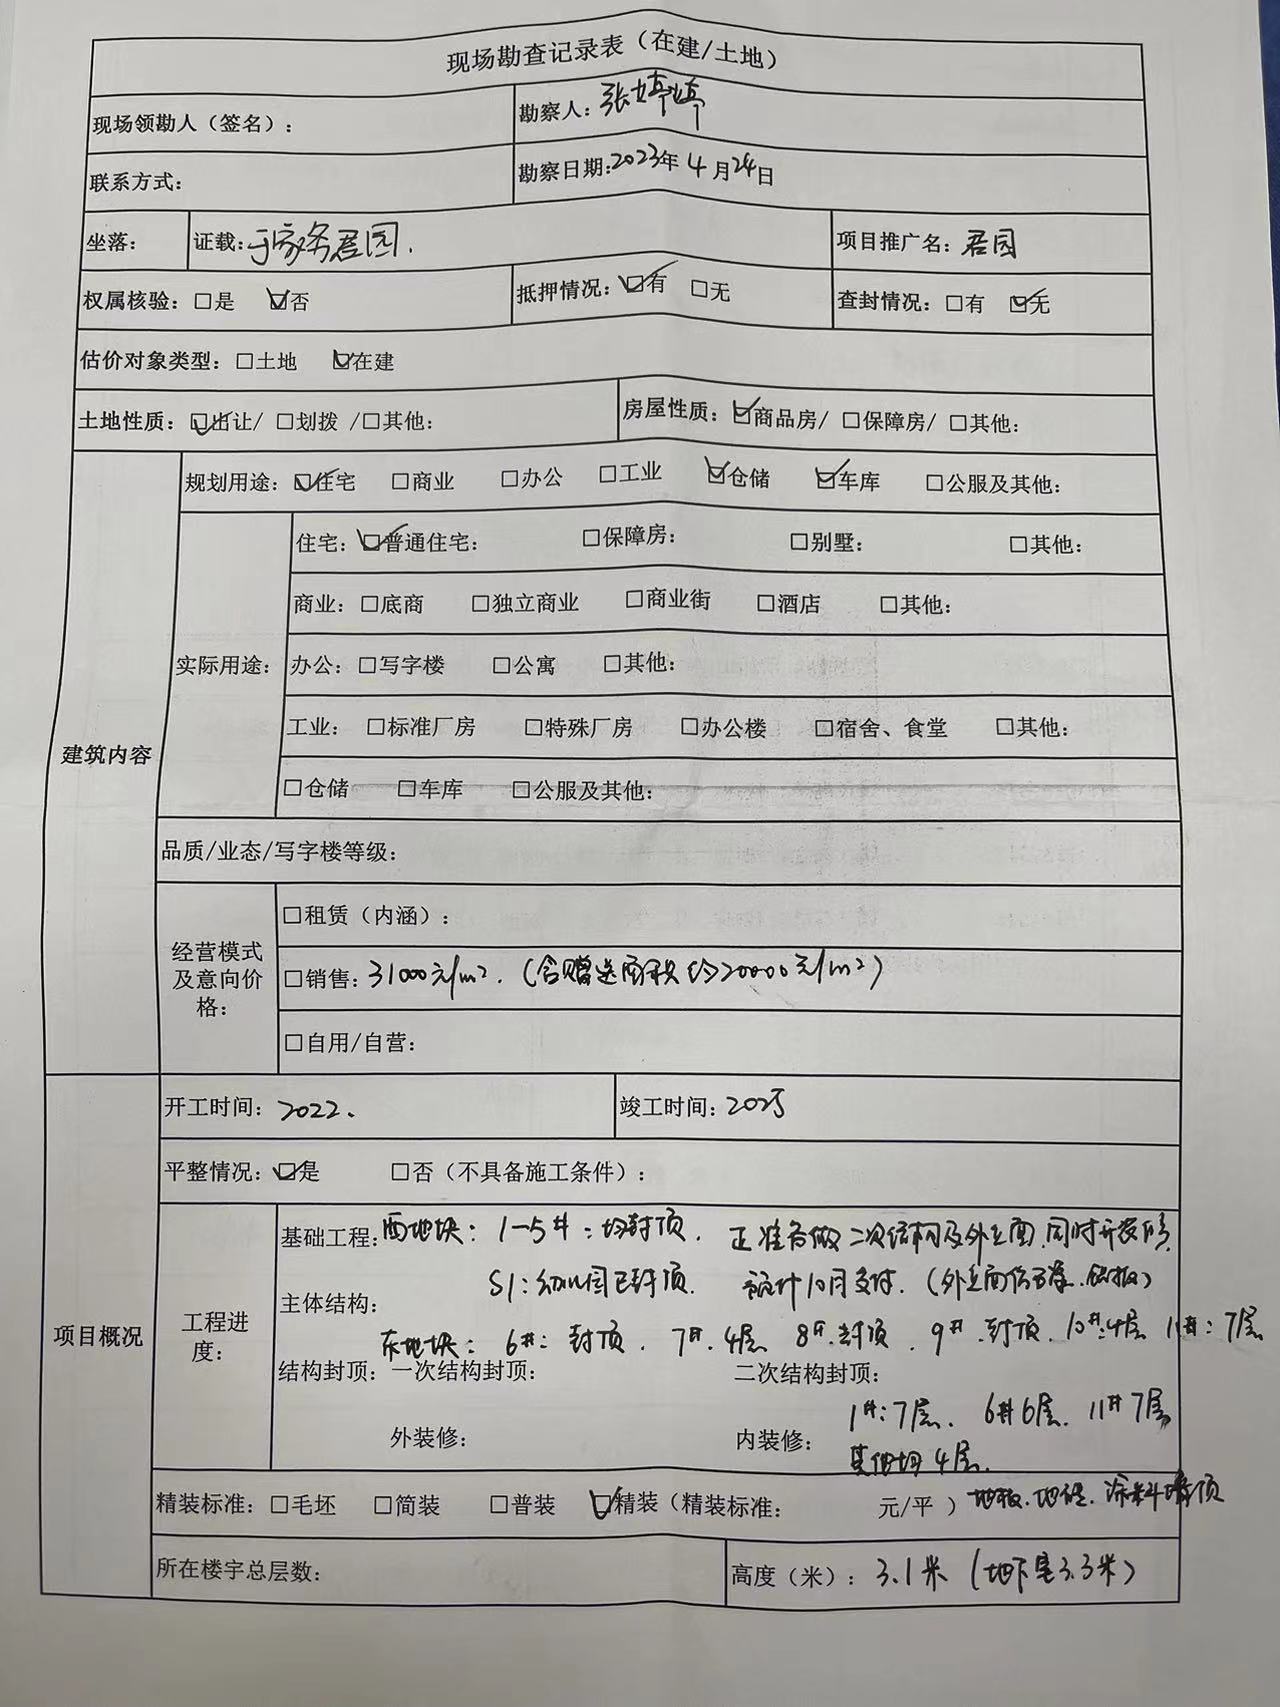 现场勘查记录表（在建/土地）
现场领勘人（签名）： 勘察人：张婷婷
联系方式： 勘察日期:2023年4月24日
坐落： 证载:于家务君园. 项目推广名：君园
权属核验：☐是 ☑否 抵押情况：☑有 ☐无 查封情况：☐有 ☑无
估价对象类型：☐土地 ☑在建
土地性质：☑出让/ ☐划拨 /☐其他： 房屋性质：☑商品房/ ☐保障房/ ☐其他：
建筑内容
规划用途：☑住宅 ☐商业 ☐办公 ☐工业 ☑仓储 ☑车库 ☐公服及其他：
实际用途：
住宅：☑普通住宅： ☐保障房： ☐别墅： ☐其他：
商业：☐底商 ☐独立商业 ☐商业街 ☐酒店 ☐其他：
办公：☐写字楼 ☐公寓 ☐其他：
工业： ☐标准厂房 ☐特殊厂房 ☐办公楼 ☐宿舍、食堂 ☐其他：
☐仓储 ☐车库 ☐公服及其他：
品质/业态/写字楼等级：
经营模式
及意向价
格：
☐租赁（内涵）：
☐销售：31000元/m². （含赠送面积约20000元/m²）
☐自用/自营：
项目概况
开工时间：2022. 竣工时间：2025
平整情况：☑是 ☐否（不具备施工条件）：
工程进
度：
基础工程：西地块：1-5#：均封顶. 正准备做二次结构及外立面,同时开
S1：幼儿园已封顶. 预计10月交付.（外立面
主体结构：
东地块：6#：封顶. 7#.4层 8#.封顶. 9#.封顶. 10#:4层 11#：7层
结构封顶：一次结构封顶： 二次结构封顶：
1#:7层. 6#6层. 11#7层
外装修： 内装修：
其他均4层.
精装标准：☐毛坯 ☐简装 ☐普装 ☑精装（精装标准： 元/平 ）地板.地砖.涂料墙顶
所在楼宇总层数： 高度（米）：3.1米（地下室3.3米）